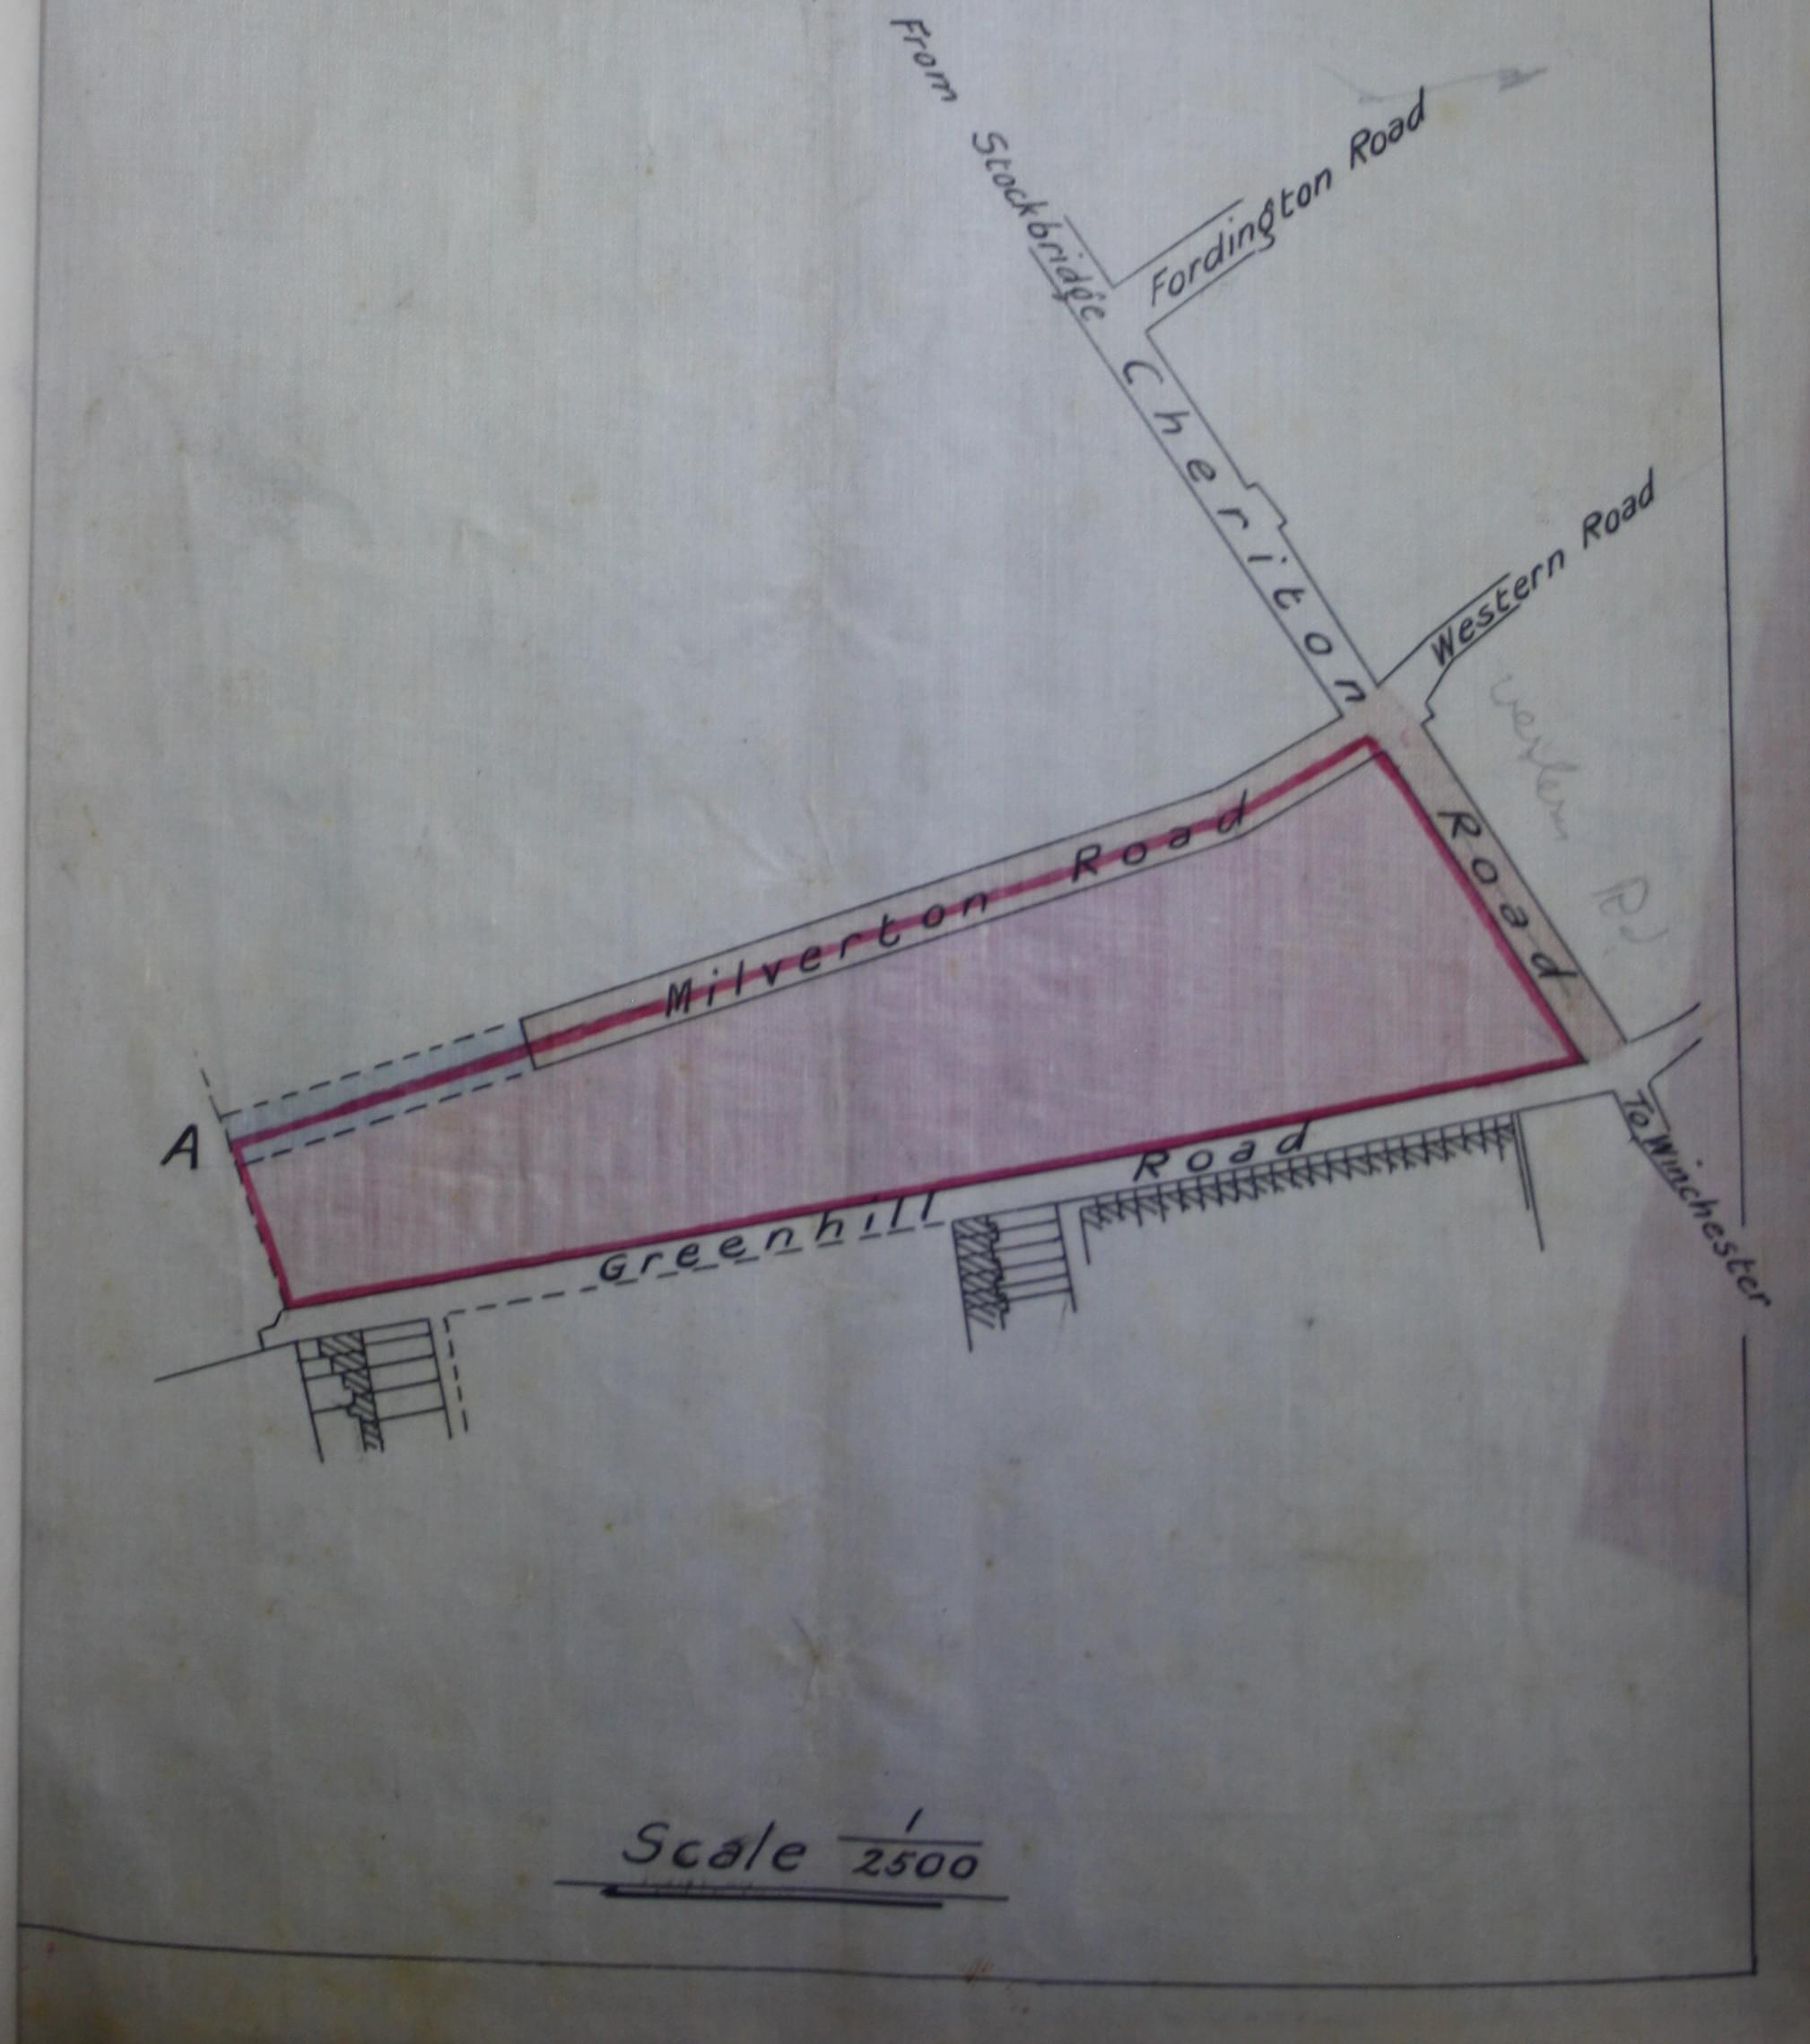 From Stockbridge
Fordington Road
Cheriton Road
Western Road
Western Rd
Milverton Road
A
Greenhill Road
To Winchester
Scale 1/2500